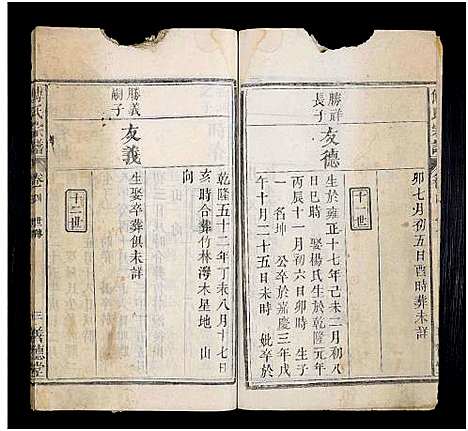 卯七月初五日酉時葬未詳
十一世
勝祥
長子
友德
生於雍正十七年己未二月初八
日巳時 娶楊氏生於乾隆元年
丙辰十一月初六日卯時 生子
一名坤 公卒於嘉慶三年戊
午十月二十五日未時 妣卒於
乾隆五十二年丁未八月十七日
亥時合葬竹林灣木星地 山
向
勝義
嗣子
友義
生娶卒葬俱未詳
十二世
傅氏宗譜
卷
世
三 善德堂